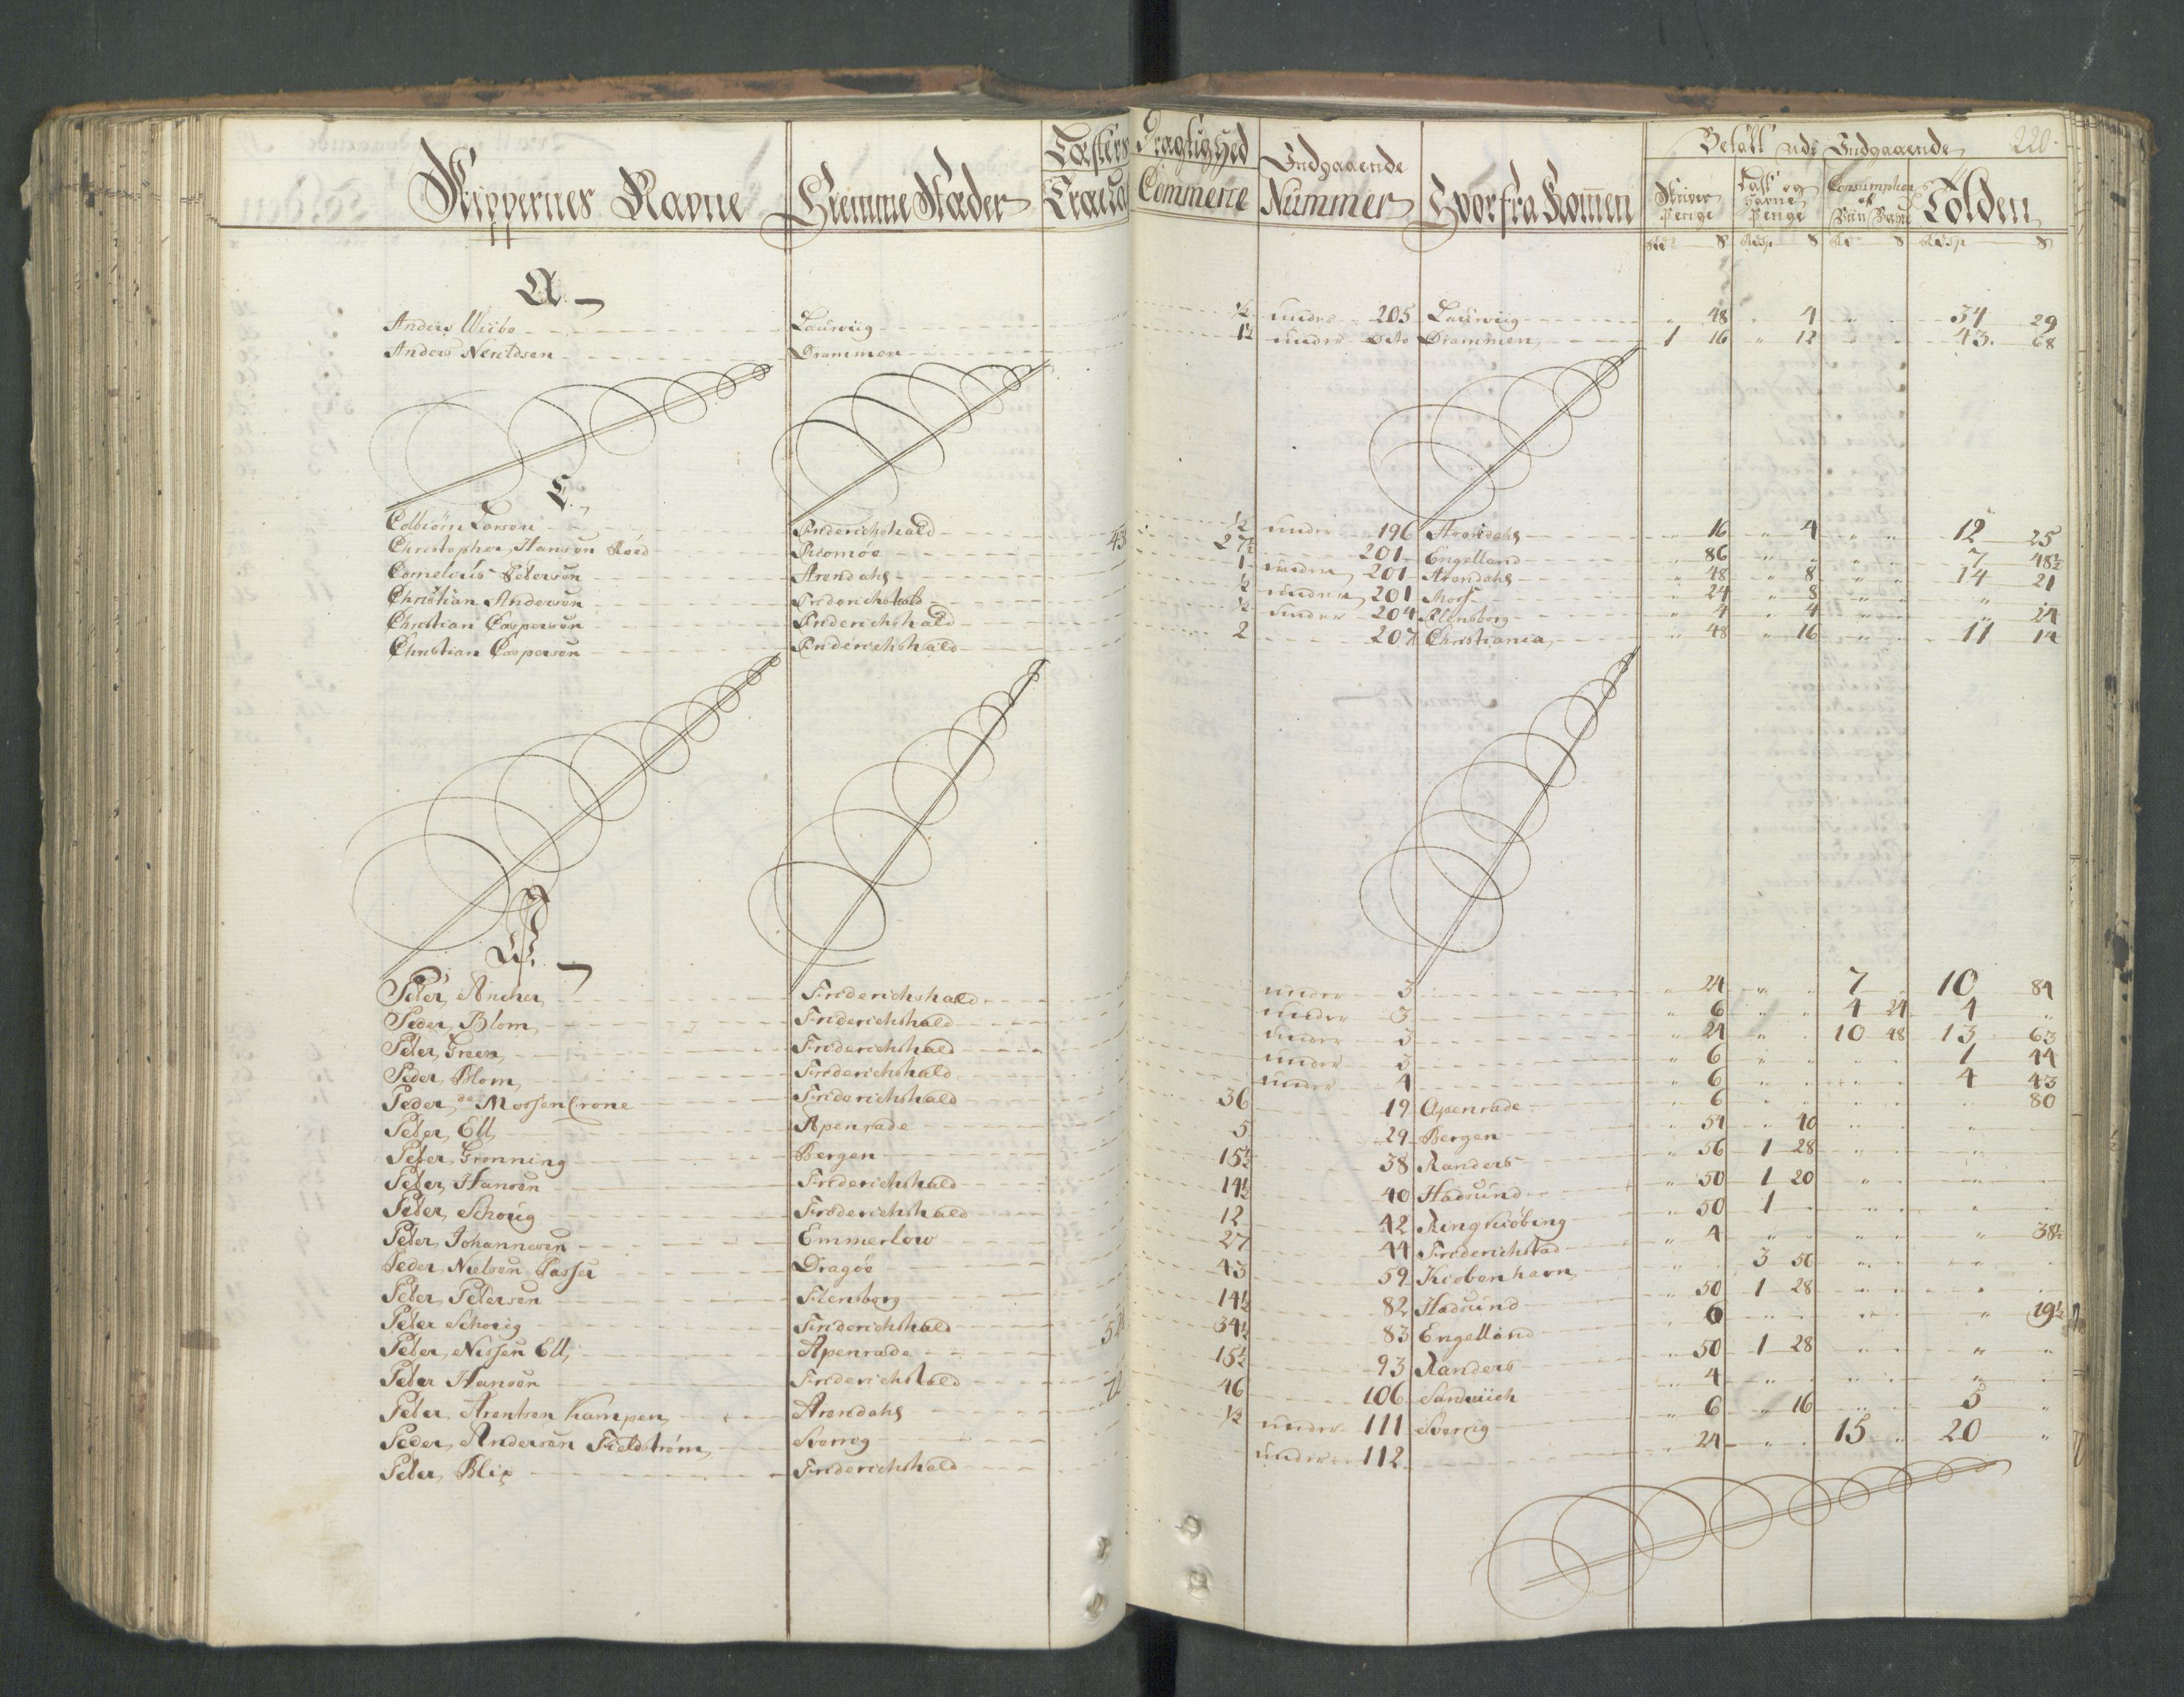 220.
Skippernes Navne Hiemme Stæder Læsters Dragtighed Indgaaende Nummer Hvorfra Kommen Betalt udi Indgaaende
Træcul Commerce Skriver Penge Last og Havne Penge Consumption af Tolden
Rd S Rdsp S Rd S Rdsp S
A.
Anders Wiibo Laurwiig ½ under 205 Laurwiig " 48 " 4 " " 34 29
Anders Nerildsen Drammen 1½ under dito Drammen 1 16 " 12 " " 43 68
C.
Colbiörn Larsen Friderichshald ½ under 196 Arendahl " 16 " 4 " " 12 25
Christopher Hansen Röed Tromöe 43 27½ 201 Engelland " 86 " " " " 7 48½
Cornelius Petersen Arendahl 1 under 201 Arendahl " 48 " 8 " " 14 21
Christian Andersen Friderichshald ½ under 201 Moss " 24 " 8 " " " "
Christian Caspersen Friderichshald ½ under 204 Flensborg " 4 " 4 " " " 24
Christian Caspersen Friderichshald 2 207 Christiania " 48 " 16 " " 11 14
P.
Peter Ancher Friderichshald under 3 " 24 " " 7 " 10 84
Peder Blom Friderichshald under 3 " 6 " " 4 24 4 "
Peter Green Friderichshald under 3 " 24 " " 10 48 13 63
Peder Blom Friderichshald under 3 " 6 " " " " 1 44
Peder de Mossencrone Friderichshald under 4 " 6 " " " " 4 43
Peter Ell Apenrade 36 19 Apenrade " 6 " " " " " 80
Peter Grönning Bergen 5 29 Bergen " 54 " 40 " " "
Peter Hansen Friderichshald 15½ 38 Randers " 56 1 28 " " "
Peder Schoug Friderichshald 14½ 40 Hadsund " 50 1 20 " " "
Peter Johannesen Emmerlow 12 42 Ringkiöbing " 50 1 " " " "
Peder Nielsen Passer Dragöe 27 44 Friderichstad " 4 " " " " " 38½
Peter Petersen Flensborg 43 59 Kiöbenhavn " " 3 56 " " "
Peter Schoug Friderichshald 14½ 82 Hadsund " 50 1 28 " " "
Peter Nissen Ell Apenrade 34½ 83 Engelland " 6 " " " " " 19½
Peter Hansen Friderichshald 15½ 93 Randers " 50 1 28 " " " "
Peter Arentsen Kampen Arendahl 46 106 Sandwiich " 4 " " " " "
Peder Andersen Fieldström Sverrig ½ under 111 Sverrig " 6 " 16 " " 5 "
Peter Blix Friderichshald under 112 " 24 " " 15 " 20 "